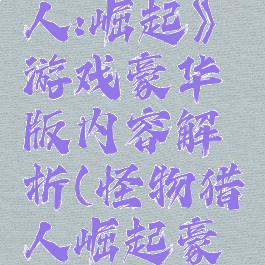 人:崛起》
游戏豪华
版内容解
析(怪物猎
人崛起豪